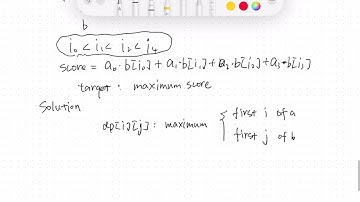 b
i₀ < i₁ < i₂ < i₄
score = a₀·b[i₀] + a₁·b[i₁] + a₂·b[i₂] + a₃·b[i₃]
target : maximum score
Solution
dp[i][j] : maximum { first i of a
first j of b